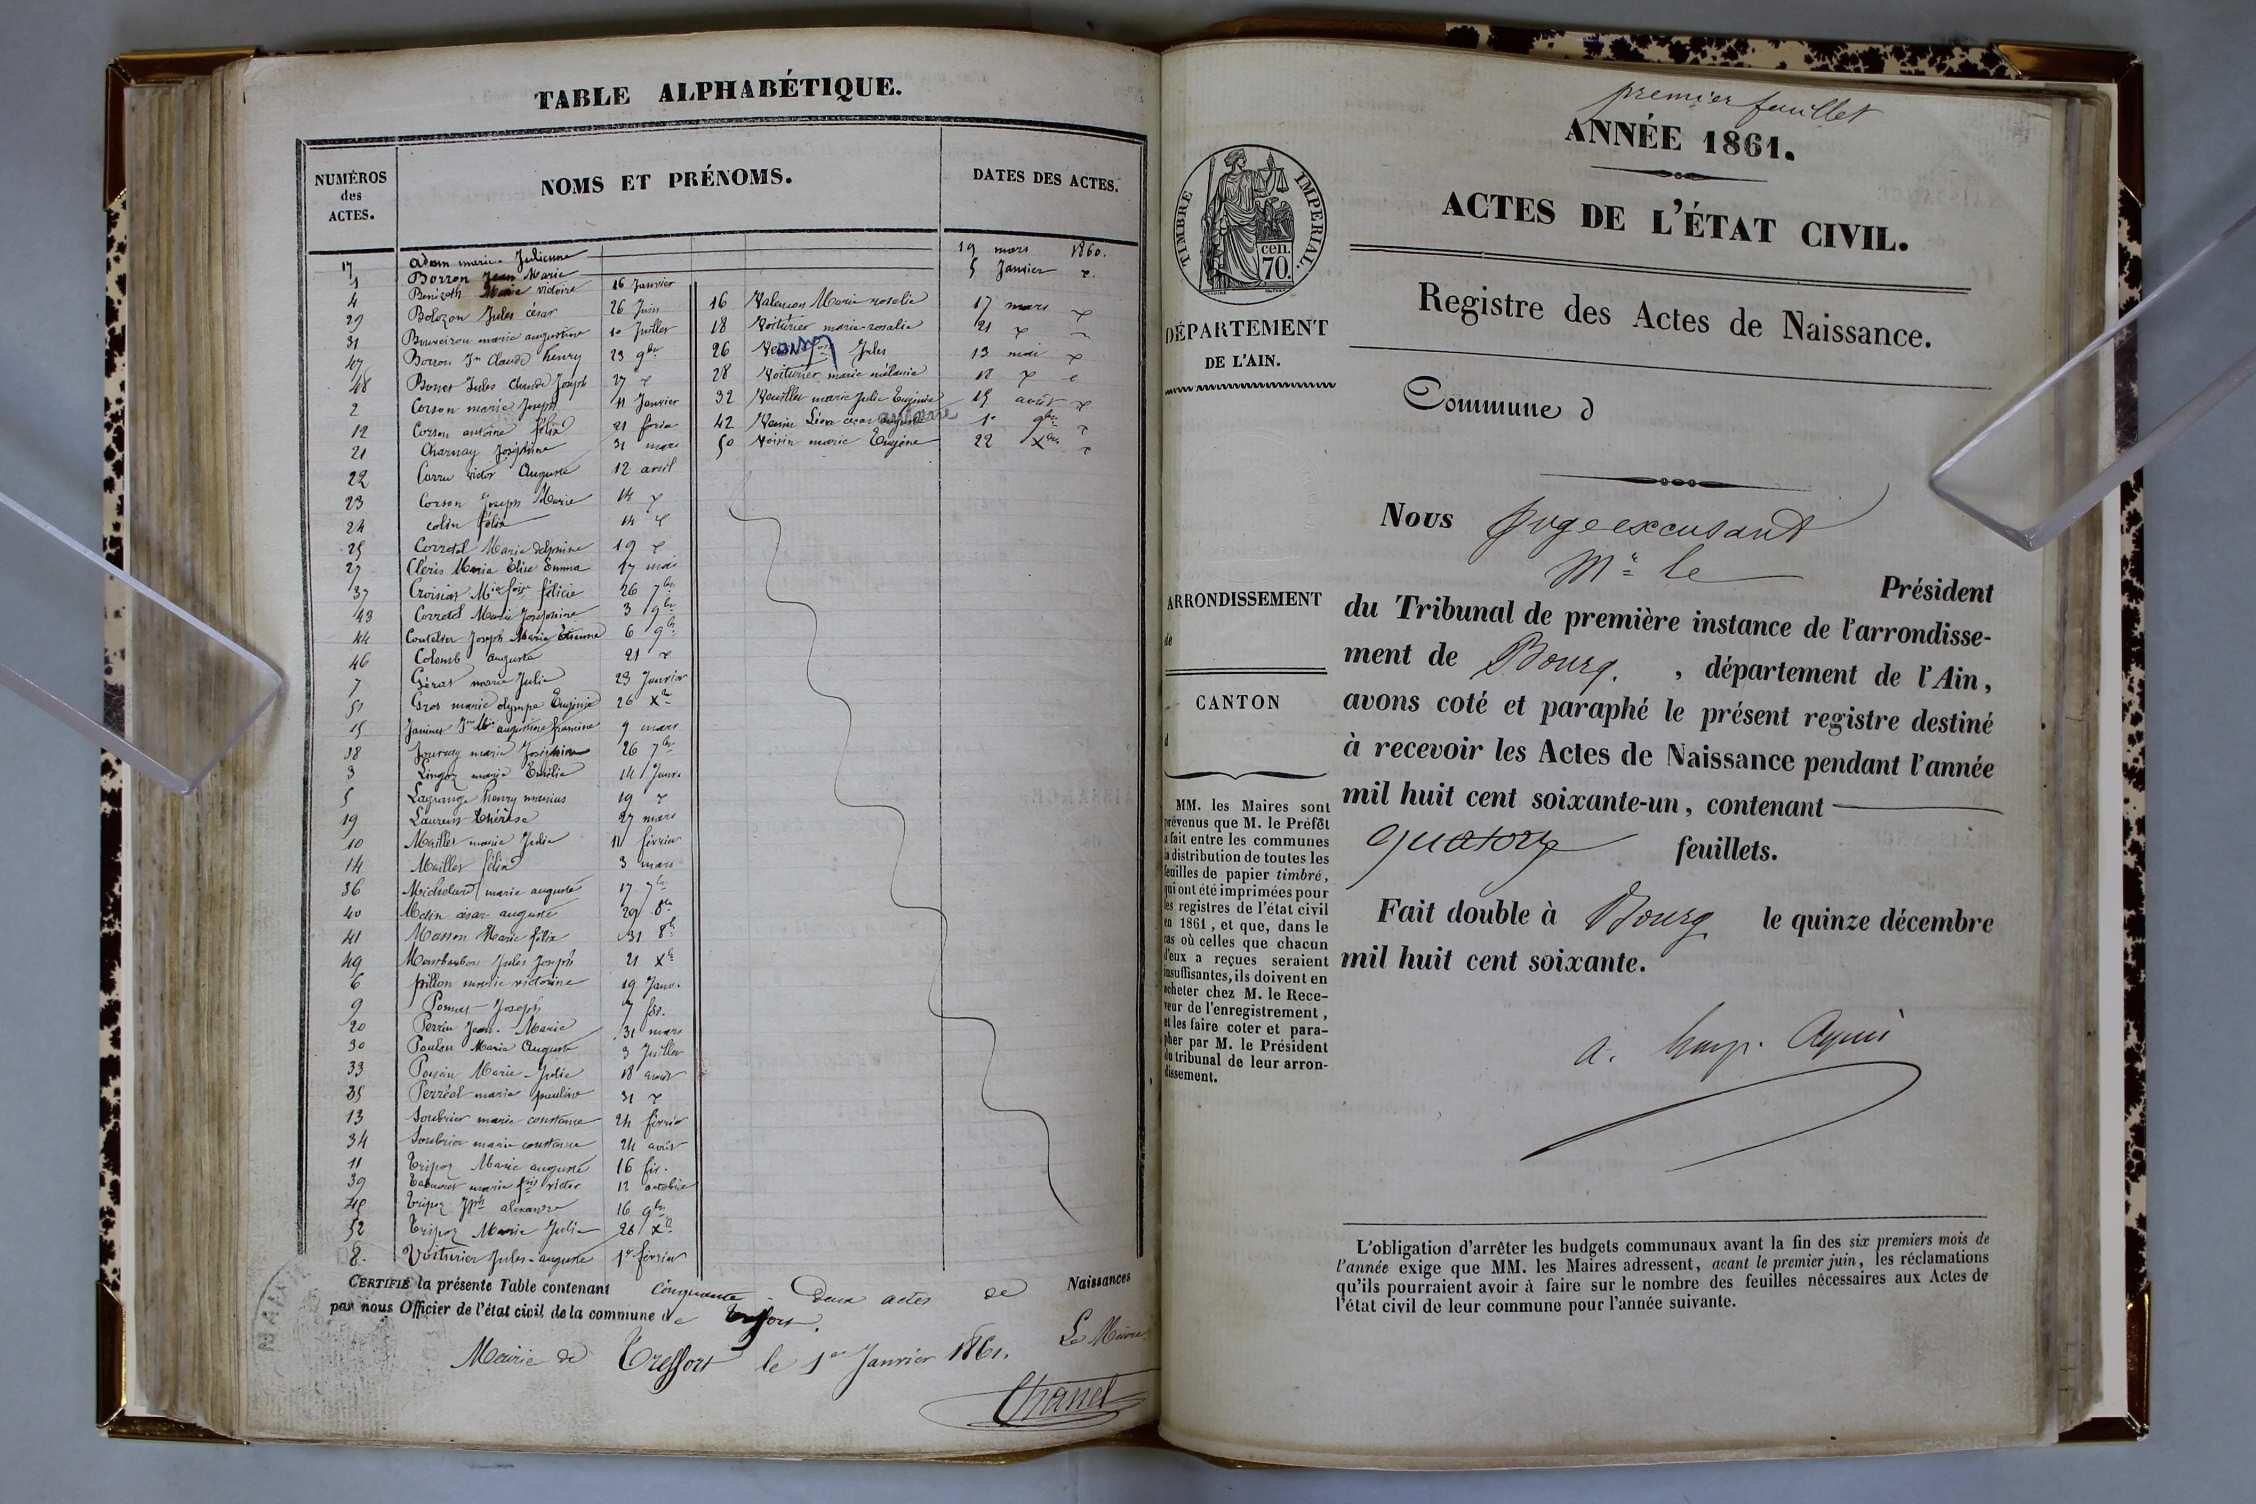 TABLE ALPHABÉTIQUE.
NUMÉROS
des
ACTES.
NOMS ET PRÉNOMS.
DATES DES ACTES.
17 adam marie Julienne 19 mars 1860.
1 Borron Jean Marie 5 Janvier
4 Marie victoire 16 Janvier
29 Bolozon Jules césar 26 Juin
31 marie augustine 10 Juillet
47 Borron Jn Claude henry 23 9bre
48 Bonnet Jules Claude Joseph 27
2 Corson marie Joseph 11 Janvier
12 Corson antoine félix 21
21 Charnay Joséphine 31 mars
22 Carru victor Auguste 12 avril
23 Corson Joseph Marie 14
24 colin félix 14
25 Corretel Marie delphine 19
27 Cléris Maria Elise Emma 27 mai
37 félicie 26 7bre
43 Corretel Marie Joséphine 3 9bre
44 Coutelier Joseph Marie Etienne 6 9bre
46 Colomb auguste 21
7 Géras marie Julie 23 Janvier
51 Gros marie olympe Eugénie 26 Xbre
15 augustine francine 9 mars
38 Journay marie Joséphine 26 7bre
3 marie Emélie 14 Janv.
5 Lagrange henry marius 19
19 Laurent thérèse 27 mars
10 Maillet marie Julie 11 février
14 Maillet félix 3 mars
36 Michelard marie auguste 17 7bre
40 césar auguste 29 8bre
41 Masson Marie félix 31 8bre
49 Jules Joseph 21 Xbre
6 pillon marie victorine 19 Janv.
9 Pommet Joseph 7 fév.
20 Perrin Jean-Marie 31 mars
30 Poulon Marie Auguste 3 Juillet
33 Marie-Julie 18 aout
35 Perréal marie pauline 31
13 Soubrier marie constance 24 février
34 Soubrier marie constance 24 août
11 Tripoz Marie auguste 16 fév.
39 marie victor 12 octobre
45 Tripoz Jph alexandre 16 9bre
52 Tripoz Marie Julie 28 Xbre
8. Voiturier Jules-auguste 1er février
16 Valençon Marie rosalie 17 mars
18 Voiturier marie-rosalie 21
26 Jules 13 mai
28 Voiturier marie mélanie 18
32 Vouillet marie Julie Eugénie 15 août
42 Léon césar 1er 9bre
50 Voisin marie Eugène 22 Xbre
CERTIFIÉ la présente Table contenant Cinquante-Deux actes de Naissances
par nous Officier de l'état civil de la commune de Treffort.
Mairie de Treffort le 1er Janvier 1861. Le Maire
Chanel
premier feuillet
ANNÉE 1861.
ACTES DE L'ÉTAT CIVIL.
Registre des Actes de Naissance.
Commune d
TIMBRE IMPÉRIAL.
cen.
70.
DÉPARTEMENT
DE L'AIN.
ARRONDISSEMENT
de
CANTON
d
MM. les Maires sont
prévenus que M. le Préfet
a fait entre les communes
la distribution de toutes les
feuilles de papier timbré,
qui ont été imprimées pour
les registres de l'état civil
en 1861, et que, dans le
cas où celles que chacun
d'eux a reçues seraient
insuffisantes, ils doivent en
acheter chez M. le Rece-
veur de l'enregistrement,
et les faire coter et para-
pher par M. le Président
du tribunal de leur arron-
dissement.
Nous Juge excusant
Mr le Président
du Tribunal de première instance de l'arrondisse-
ment de Bourg. , département de l'Ain,
avons coté et paraphé le présent registre destiné
à recevoir les Actes de Naissance pendant l'année
mil huit cent soixante-un, contenant
quatorze feuillets.
Fait double à Bourg le quinze décembre
mil huit cent soixante.
L'obligation d'arrêter les budgets communaux avant la fin des six premiers mois de
l'année exige que MM. les Maires adressent, avant le premier juin, les réclamations
qu'ils pourraient avoir à faire sur le nombre des feuilles nécessaires aux Actes de
l'état civil de leur commune pour l'année suivante.